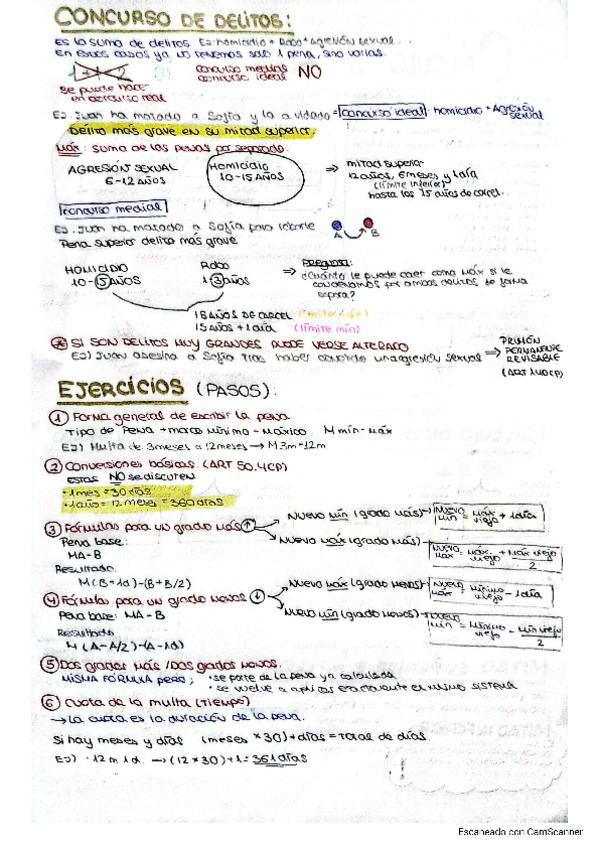 CONCURSO DE DELITOS:
Es la suma de delitos Ej: homicidio + Robo + agresión sexual...
En estos casos ya no tenemos solo 1 pena, sino varias.
1+1=2
concurso medial
concurso ideal NO
se puede hacer
en concurso real
Ej. Juan ha matado a Sofía y la a violado = concurso ideal homicidio + Agresión sexual
Delito más grave en su mitad superior.
Máx: suma de las penas por separado.
AGRESIÓN SEXUAL
6-12 AÑOS
Homicidio
10-15 AÑOS
⇒ mitad superior
12 años, 6 meses y 1 día
(límite inferior)
hasta los 15 años de carcel.
concurso medial
Ej. Juan ha matado a Sofía para robarle
A B
Pena superior delito más grave
HOMICIDIO
10-15 AÑOS
Robo
1-3 AÑOS
⇒ Pregunta:
¿Cuánto le puede caer como máx si le
condenamos por ambos delitos de forma
18 AÑOS DE CARCEL
15 AÑOS + 1 día (límite mín)
SI SON DELITOS MUY GRANDES PUEDE VERSE ALTERADO
Ej) Juan asesina a Sofía tras haber cometido una agresión sexual ⇒ PRISIÓN
PERMANENTE
REVISABLE
(ART 140 CP)
EJERCICIOS (PASOS).
1 Forma general de escribir la pena.
Tipo de Pena + marco mínimo - máximo M mín - máx
Ej) Multa de 3 meses a 12 meses → M3m-12m
2 Conversiones básicas. (ART 50.4 CP)
Estas NO se discuten
· 1 mes = 30 días
· 1 año = 12 meses = 360 días
3 Fórmulas para un grado más ↑
Nuevo mín (grado más) → Nuevo mín = máx viejo + 1 día
Nuevo máx (grado más) → Nuevo máx = máx viejo + máx viejo / 2
Pena base:
MA-B
Resultado.
M (B+1d)-(B+B/2)
4 Fórmulas para un grado menos ↓
Nuevo máx (grado menos) → Nuevo máx = mínimo viejo - 1 día
Nuevo mín (grado menos) → Nuevo mín = mínimo viejo - mín viejo / 2
Pena base: MA-B
Resultado
M (A-A/2)-(A-1d)
5 Dos grados más / Dos grados menos.
MISMA FÓRMULA pero; · se parte de la pena ya calculada
· se vuelve a aplicar exactamente el mismo sistema
6 Cuota de la multa (tiempo)
→ La cuota es la duración de la pena.
Si hay meses y días (meses × 30) + días = total de días.
Ej) · 12m 1d. → (12 × 30) + 1 = 361 días
Escaneado con CamScanner